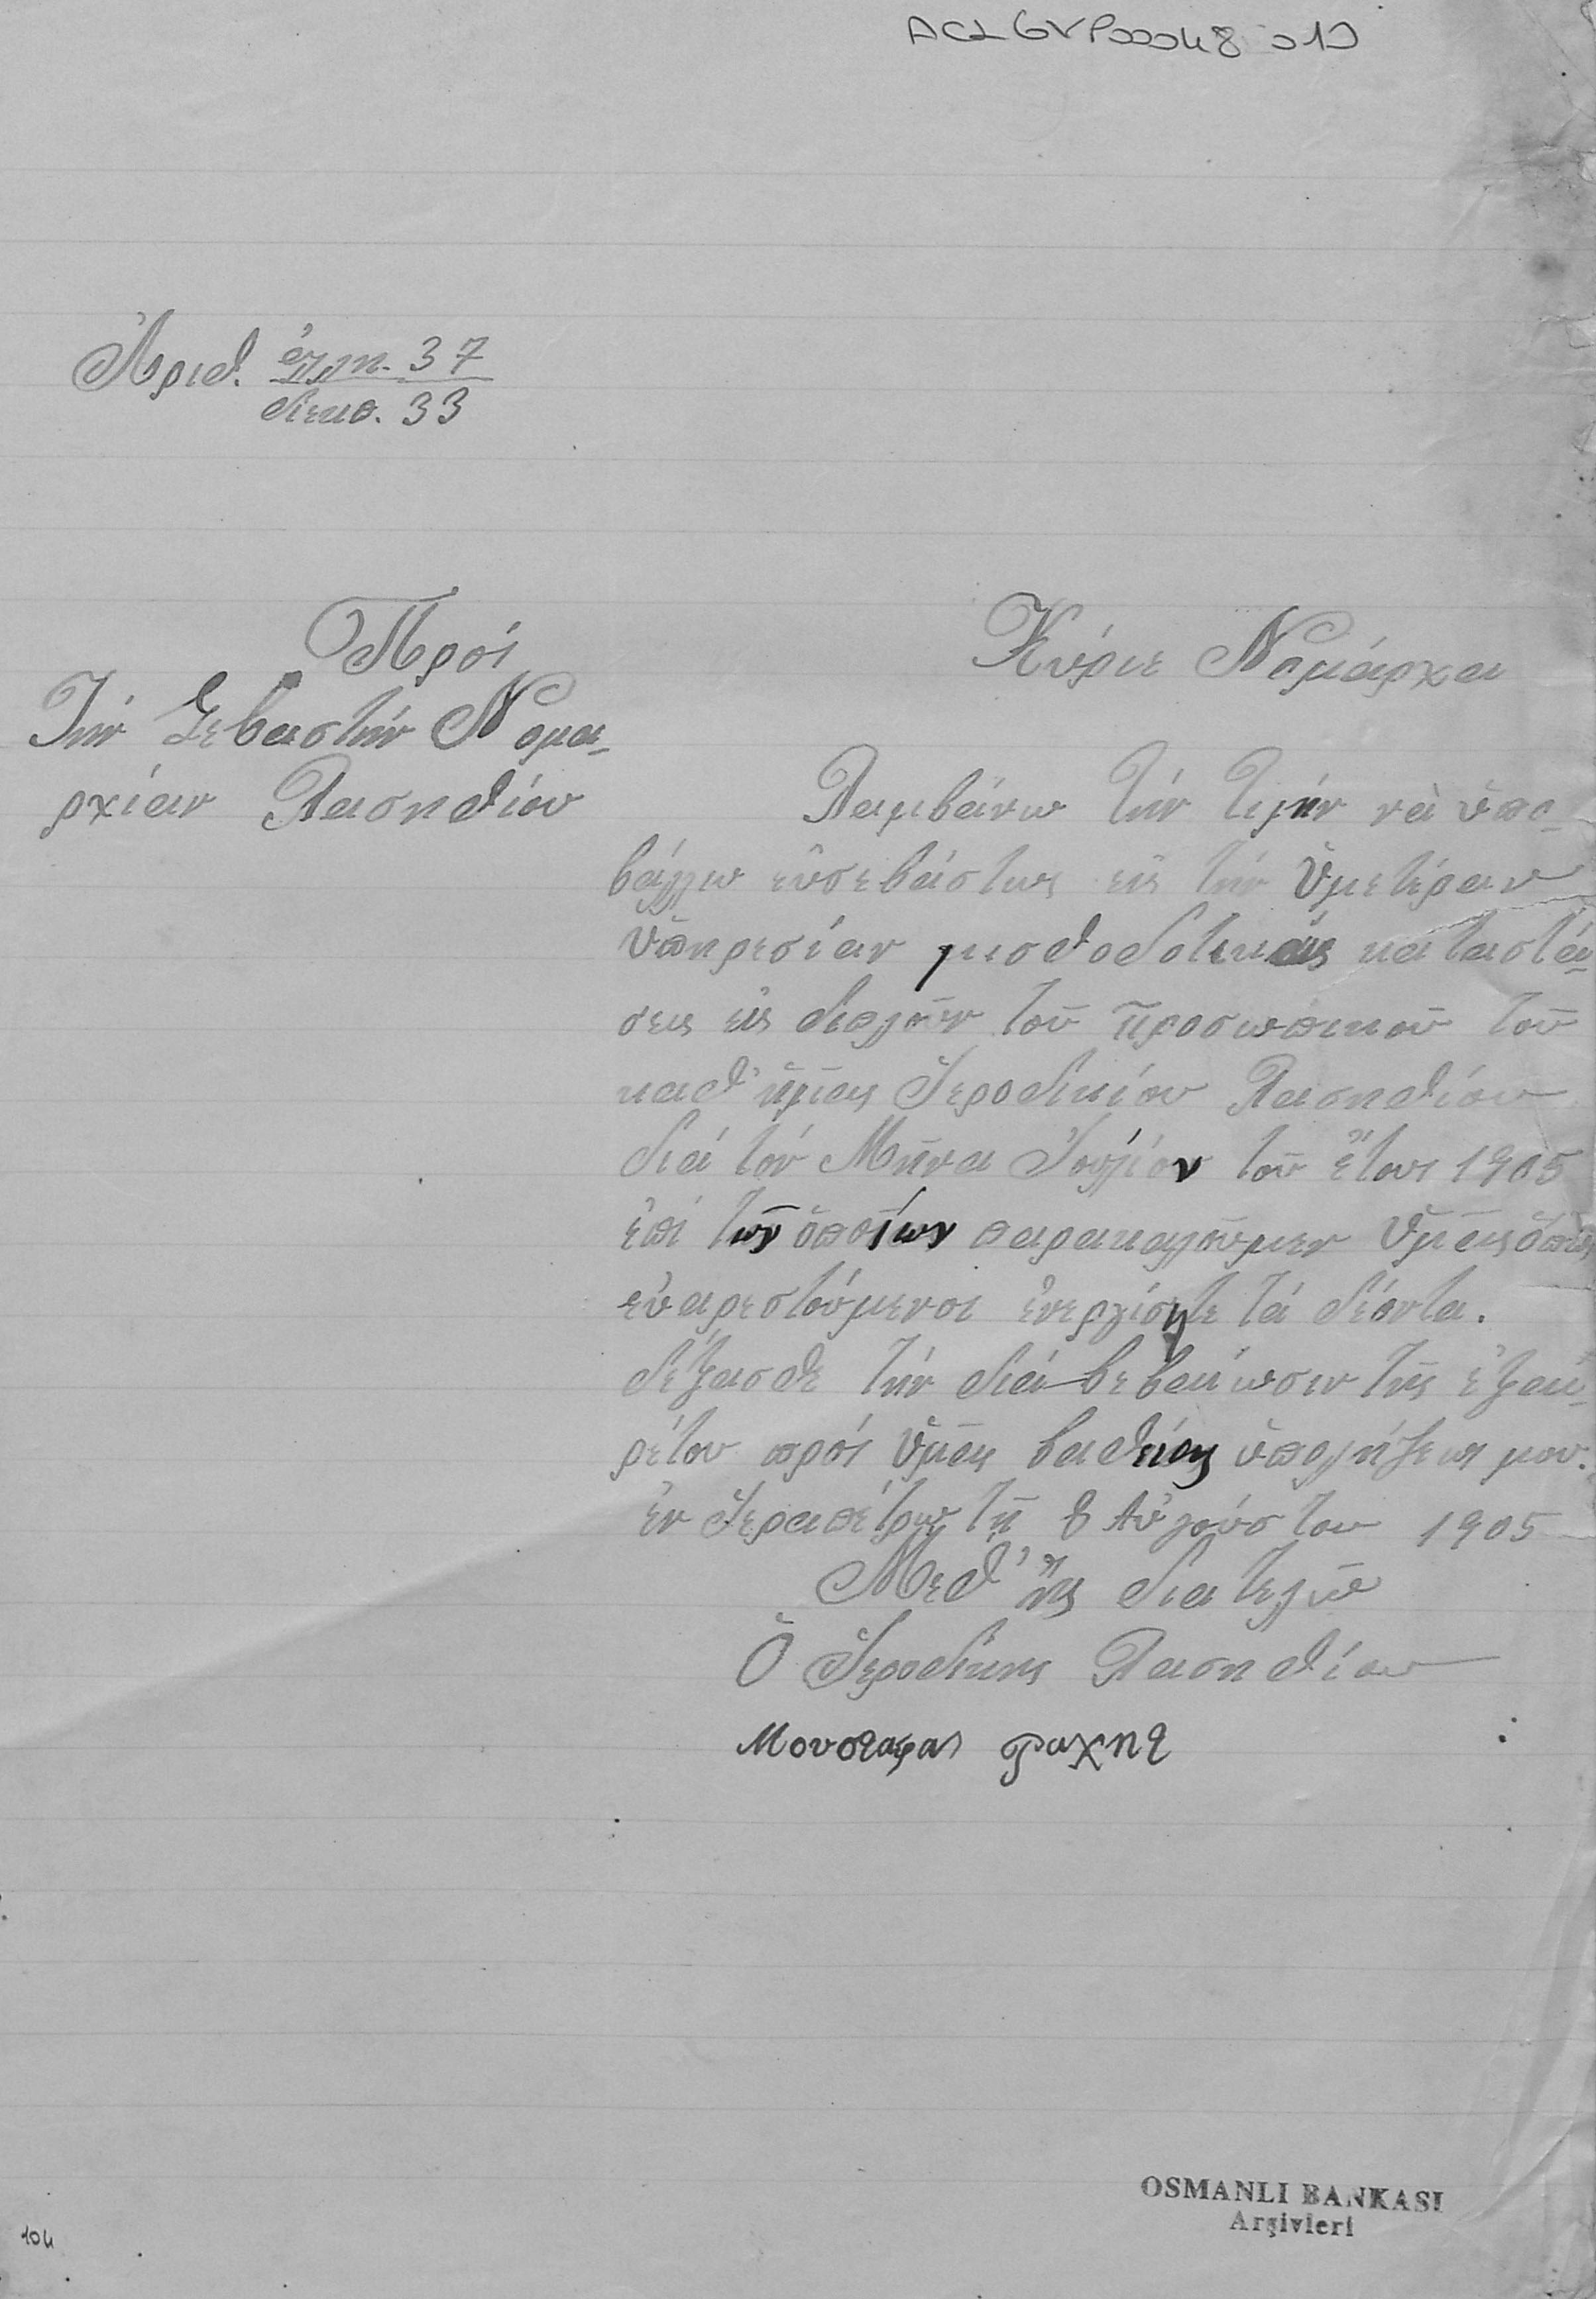 ACLGVP00048 010
Ἀριθ. ἐγγρ. 37
διεκπ. 33
Πρός
Τήν Σεβαστήν Νομα-
ρχίαν Λασηθίου
Κύριε Νομάρχα
Λαμβάνω τήν τιμήν νὰ ὑπο-
βάλλω εὐσεβάστως εἰς τήν ὑμετέραν
ὑπηρεσίαν μισθοδοτικάς καταστά-
σεις εἰς διπλοῦν τοῦ προσωπικοῦ τοῦ
καθ' ἡμᾶς Ἱεροδικίου Λασηθίου
διά τόν Μῆνα Ἰούλιον τοῦ ἔτους 1905
ἐπί τῶν ὁποίων παρακαλοῦμεν ὑμᾶς ὅπως
εὐαρεστούμενοι ἐνεργήσητε τά δέοντα.
δέξασθε τήν διά βεβαίωσιν τῆς ἐξαι-
ρέτου πρός ὑμᾶς βαθείας ὑπολήψεως μου.
ἐν Ἱεραπέτρω τῇ 8 Αὐγούστου 1905
Μεθ' ἧς διατελῶ
Ὁ Ἱεροδίκης Λασηθίου
Μουσταφας ραχητ
OSMANLI BANKASI
Arşivleri
104